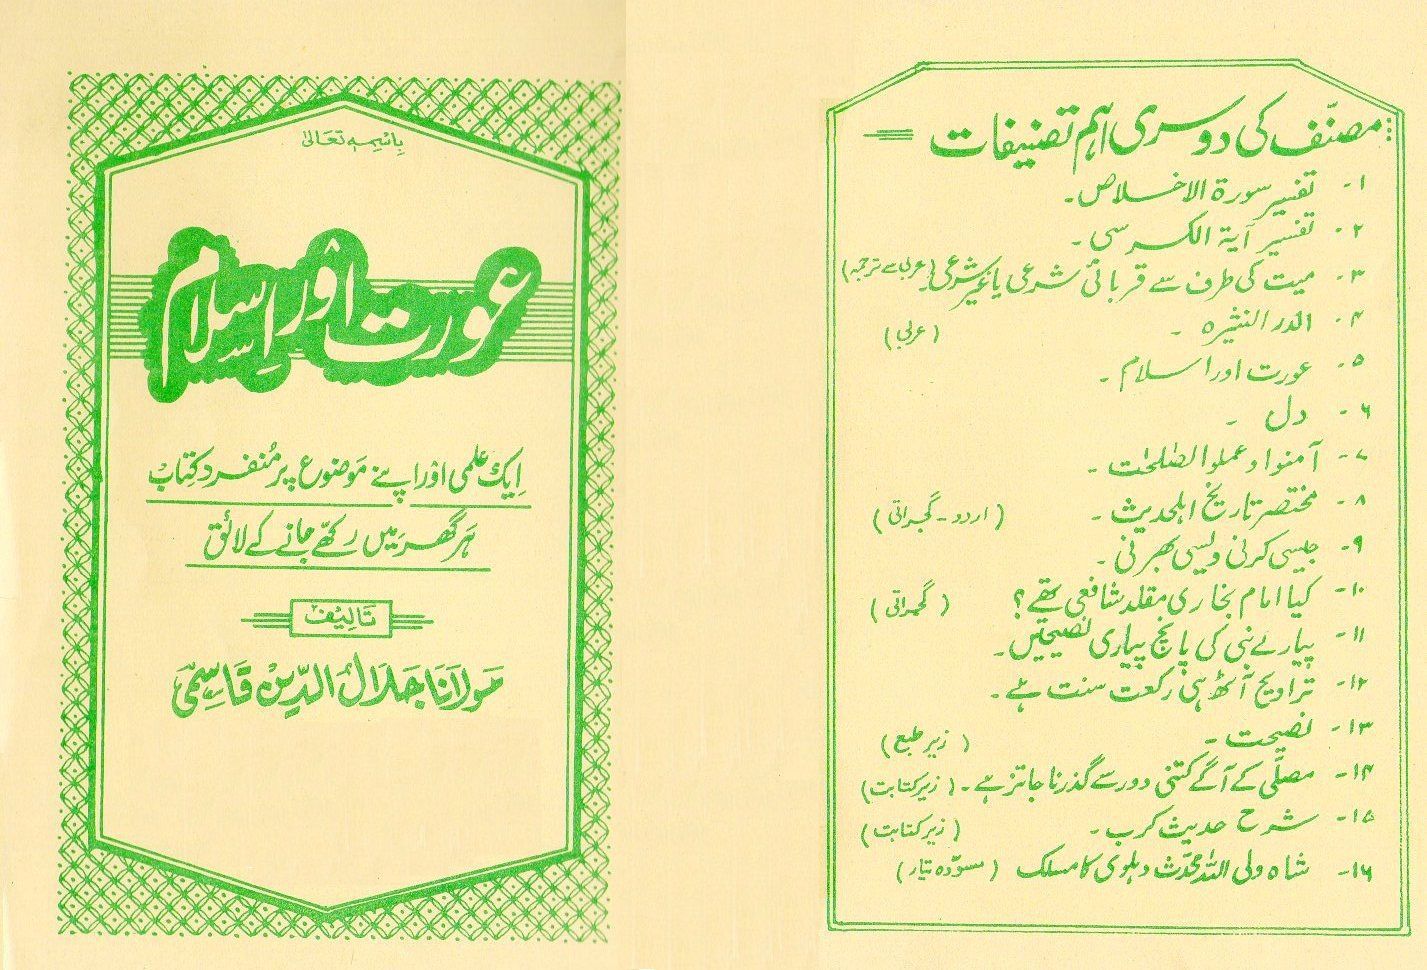 باسمہ تعالیٰ
عورت اور اسلام
ایک علمی اور اپنے موضوع پر منفرد کتاب
ہر گھر میں رکھے جانے کے لائق
تالیف
مولانا جلال الدین قاسمی
مصنّف کی دوسری اہم تصنیفات
۱- تفسیر سورۃ الاخلاص۔
۲- تفسیر آیۃ الکرسی۔
۳- میت کی طرف سے قربانی شرعی یا غیر شرعی۔ (عربی سے ترجمہ)
۴- الدر النثیرہ۔ (عربی)
۵- عورت اور اسلام۔
۶- دل۔
۷- آمنوا وعملوا الصٰلحٰت۔
۸- مختصر تاریخ اہلحدیث۔ (اردو - گجراتی)
۹- جیسی کرنی ویسی بھرنی۔
۱۰- کیا امام بخاری مقلد شافعی تھے؟ (گجراتی)
۱۱- پیارے نبی کی پانچ پیاری نصیحتیں۔
۱۲- تراویح آٹھ ہی رکعت سنت ہے۔
۱۳- نصیحت۔ (زیر طبع)
۱۴- مصلّی کے آگے کتنی دور سے گذرنا جائز ہے۔ (زیر کتابت)
۱۵- شرح حدیث کرب۔ (زیر کتابت)
۱۶- شاہ ولی اللہ محدّث دہلوی کا مسلک (مسوّدہ تیار)